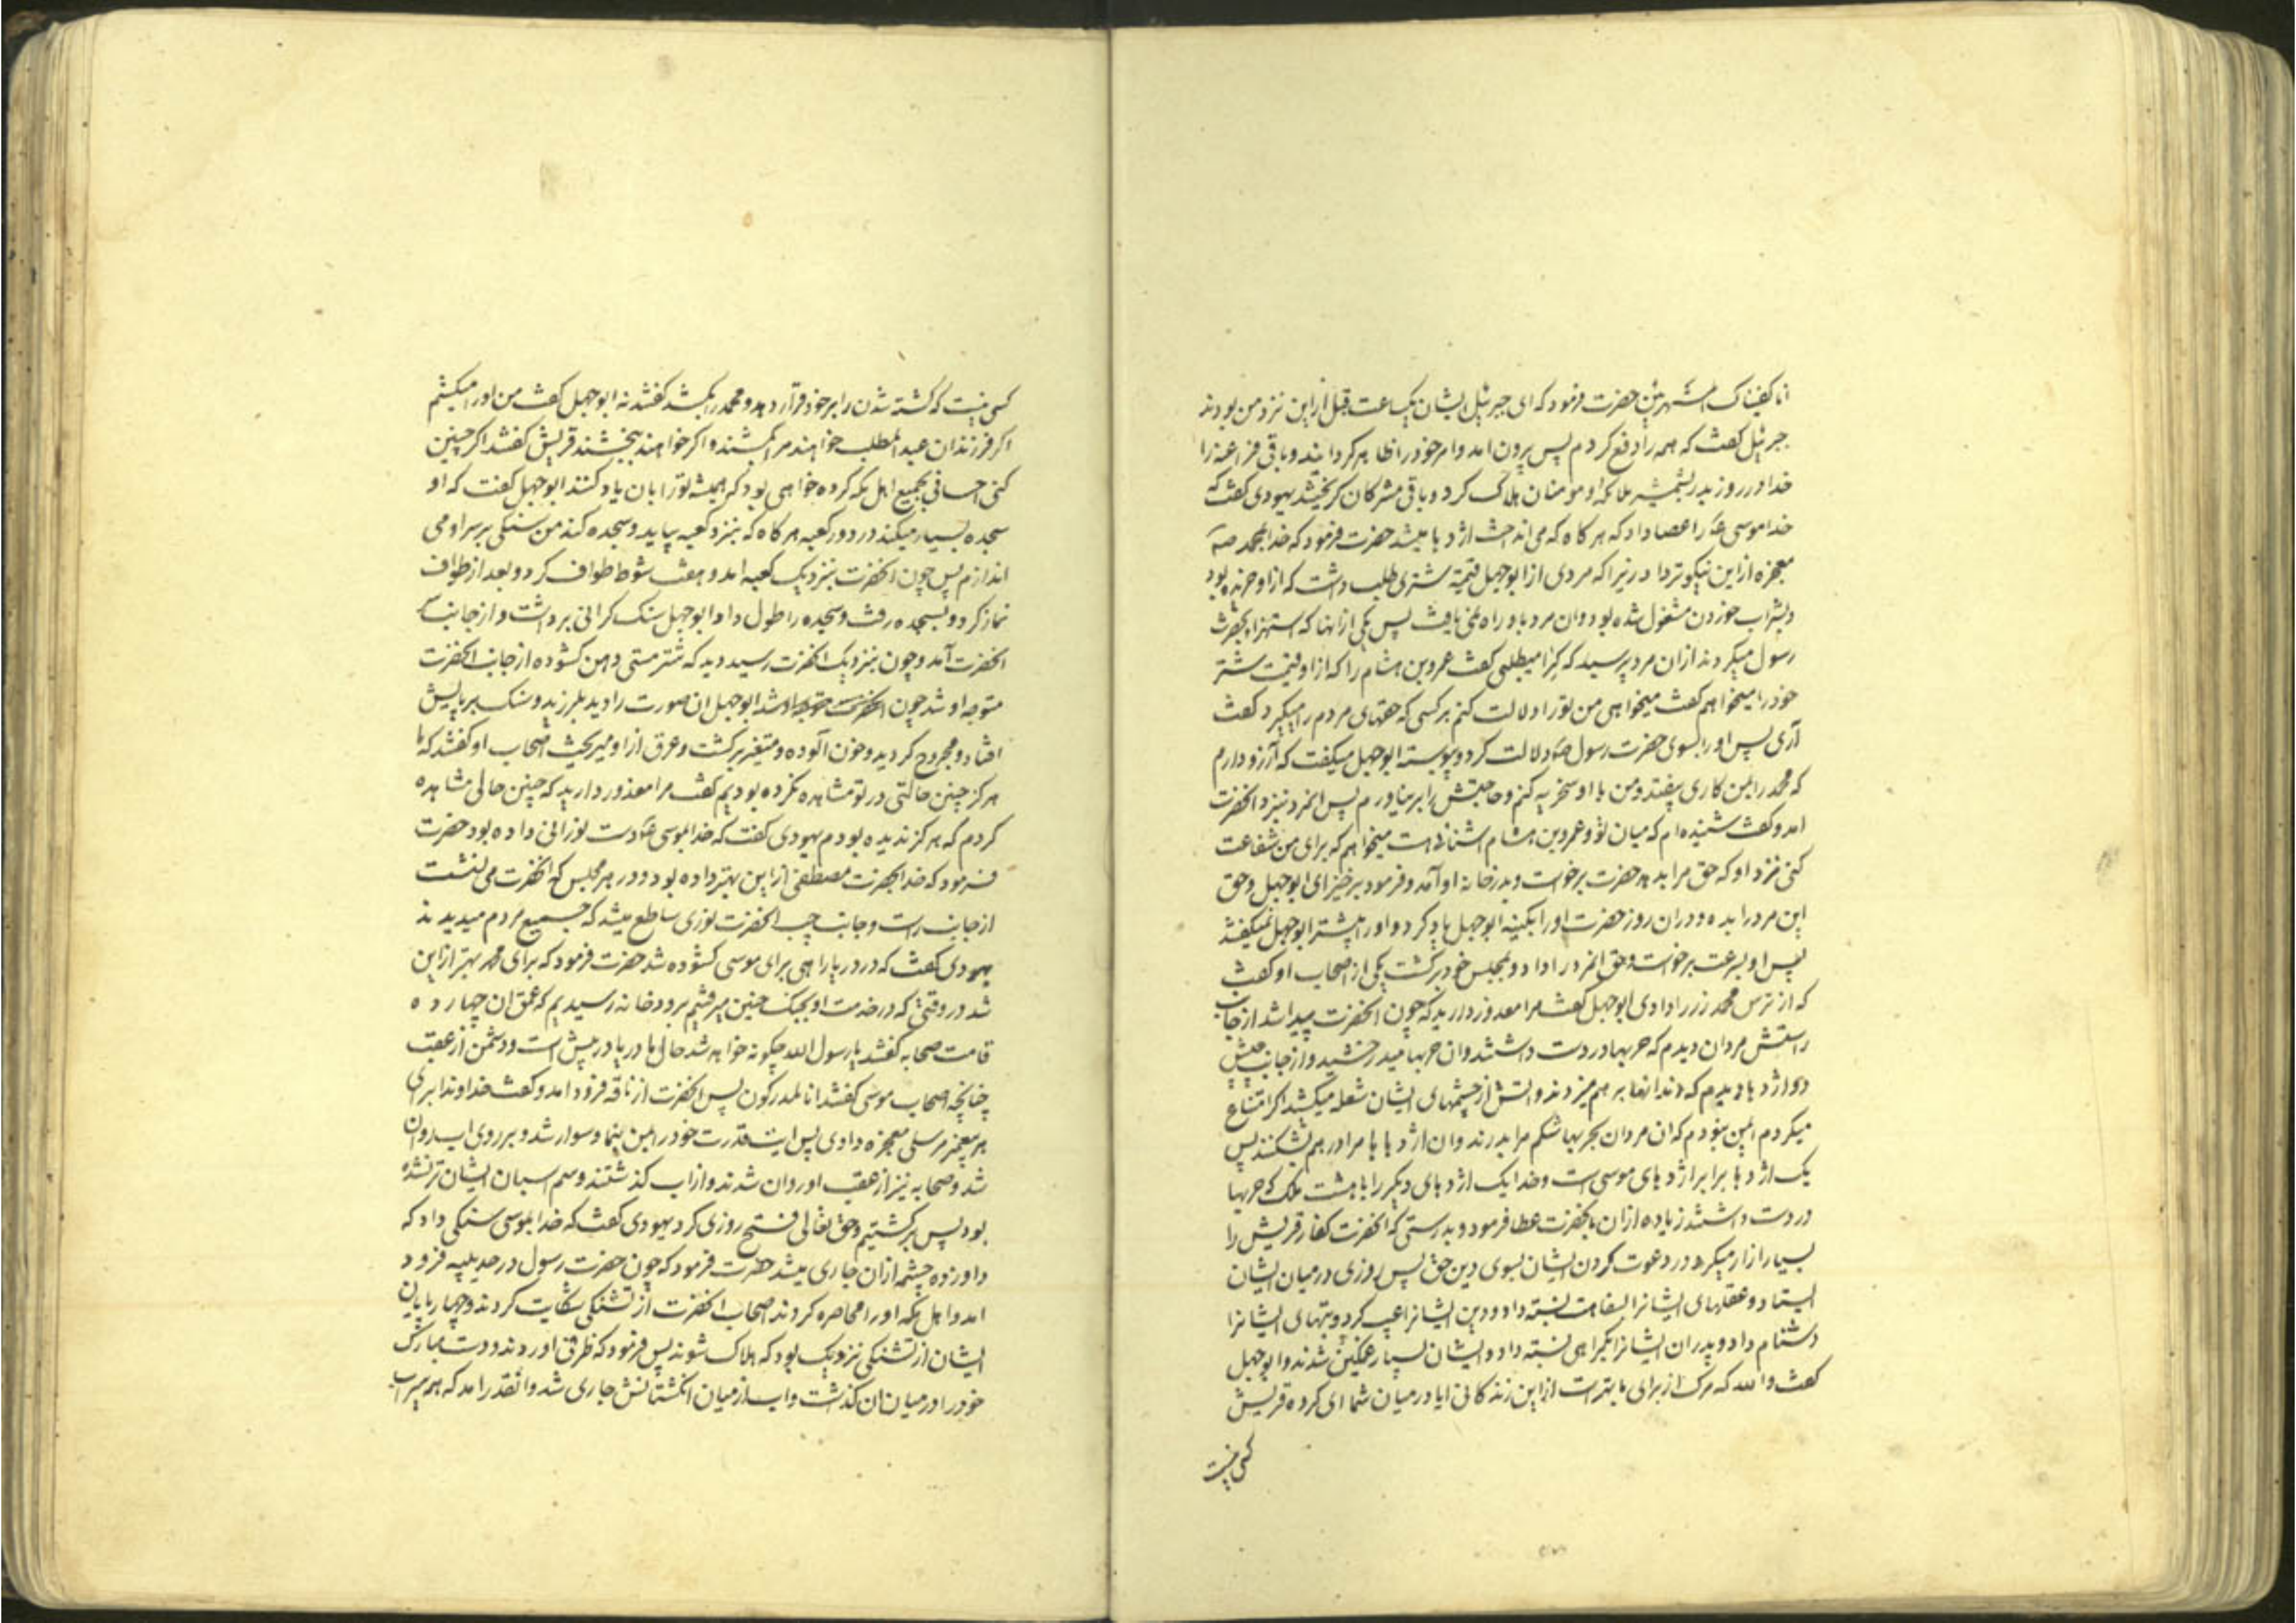 انا کفیناک المستهزئین حضرت فرمود که ای جبرئیل ایشان یکساعت قبل ازاین نزد من بودند
جبرئیل کفت که همه را دفع کردم پس بیرون امد وامر خود را ظاهر کردانید وباقی فراعنه را
خدا در روز بدر بشمشیر ملائکه و مومنان هلاک کرد وباقی مشرکان کریختند یهودی کفت که
خدا موسی را عصا داد که هر کاه که می انداخت اژدها میشد حضرت فرمود که خدا بمحمد
معجزه ازاین نیکوتر داد زیرا که مردی از ابوجهل قیمة شتری طلب داشت که ازاو خریده بود
و بشراب خوردن مشغول شده بود وان مرد باو راه نمی یافت پس یکی ازانها که استهزا بحضرت
رسول میکردند ازان مرد پرسید که کرا میطلبی کفت عمرو بن هشام را که ازاو قیمت شتر
خود را میخواهم کفت میخواهی من تورا دلالت کنم بر کسی که حقهای مردم را میکیرد کفت
آری پس اورا بسوی حضرت رسول دلالت کرد وپیوسته ابوجهل میکفت که آرزو دارم
که محمد را بمن کاری بیفتد ومن با او سخریه کنم وحاجتش را برنیاورم پس انمرد بنزد انحضرت
امد وکفت شنیده ام که میان تو وعمرو بن هشام اشنائی هست میخواهم که برای من شفاعت
کنی نزد او که حق مرا بدهد حضرت برخواست وبدر خانه او آمد وفرمود برخیز ای ابوجهل وحق
این مرد را بده ودران روز حضرت اورا بکنیه ابوجهل یاد کرد واورا پیشتر ابوجهل نمیکفتند
پس او بسرعت برخواست وحق انمرد را داد و بمجلس خود برکشت یکی از اصحاب او کفت
که از ترس محمد زر را دادی ابوجهل کفت مرا معذور دارید که چون انحضرت پیدا شد از جانب
راستش مردان دیدم که حربها در دست داشتند وان حربها میدرخشید واز جانب چپش
دو اژدها دیدم که دندانها بر هم میزدند واتش از چشمهای ایشان شعله میکشید اکر امتناع
میکردم ایمن نبودم که ان مردان بحربها شکم مرا بدرند وان اژدهاها مرا در هم شکنند پس
یک اژدها برابر اژدهای موسی است وخدا یک اژدهای دیکر را با هشت ملک که حربها
در دست داشتند زیاده ازان بانحضرت عطا فرمود وبدرستی که انحضرت کفار قریش را
بسیار ازار میکرد در دعوت کردن ایشان بسوی دین حق پس روزی در میان ایشان
ایستاد وعقلهای ایشانرا بسفاهت نسبته داد ودین ایشانرا عیب کرد وبتهای ایشانرا
دشنام داد وپدران ایشانرا بکمراهی نسبته داد وایشان بسیار غمکین شدند وابوجهل
کفت والله که مرک از برای ما بهتر است ازاین زندکانی ایا در میان شما ای کروه قریش
کسی نیست
کسی نیست که کشته شدن را بر خود قرار دهد ومحمد را بکشد کفتند نه ابوجهل کفت من اورا میکشم
اکر فرزندان عبدالمطلب خواهند مرا بکشند واکر خواهند ببخشند قریش کفتند اکر چنین
کنی احسانی بجمیع اهل مکه کرده خواهی بود که همیشه تورا بان یاد کنند ابوجهل کفت که او
سجده بسیار میکند در دور کعبه هر کاه که بنزد کعبه بیاید وسجده کند من سنکی بر سر او می
اندازم پس چون انحضرت بنزدیک کعبه امد وهفت شوط طواف کرد وبعد از طواف
نماز کرد و بسجده رفت وسجده را طول داد ابوجهل سنک کرانی برداشت واز جانب
انحضرت آمد وچون بنزدیک انحضرت رسید دید که شتر مستی دهن کشوده از جانب انحضرت
متوجه او شد چون ابوجهل ان صورت را دید بلرزید وسنک بر پایش
افتاد ومجروح کردید وخون آلوده ومتغیر برکشت وعرق ازاو میریخت اصحاب او کفتند که ما
هرکز چنین حالتی در تو مشاهده نکرده بودیم کفت مرا معذور دارید که چنین حالی مشاهده
کردم که هرکز ندیده بودم یهودی کفت که خدا بموسی دست نورانی داده بود حضرت
فرمود که خدا بحضرت مصطفی ازاین بهتر داده بود ودر هر مجلس که انحضرت می نشست
از جانب راست وجانب چپ انحضرت نوری ساطع میشد که جمیع مردم میدیدند
یهودی کفت که در دریا راهی برای موسی کشوده شد حضرت فرمود که برای محمد بهتر ازاین
شد در وقتی که در خدمت او بجنک حنین میرفتیم برودخانه رسیدیم که عمق ان چهارده
قامت صحابه کفتند یا رسول الله چکونه خواهد شد حال ما دریا در پیش است ودشمن از عقب
چنانچه اصحاب موسی کفتند انا لمدرکون پس انحضرت از ناقه فرود امد وکفت خداوندا برای
هر پیغمبر مرسلی معجزه دادی پس ایت قدرت خود را بمن بنما وسوار شد وبر روی اب روان
شد وصحابه نیز از عقب او روان شدند واز اب کذشتند وسم اسبان ایشان تر نشده
بود پس برکشتیم وحق تعالی فتح روزی کرد یهودی کفت که خدا بموسی سنکی داد که
دوازده چشمه ازان جاری میشد حضرت فرمود که چون حضرت رسول در حدیبیه فرود
امد واهل مکه اورا محاصره کردند اصحاب انحضرت از تشنکی شکایت کردند وچهارپایان
ایشان از تشنکی نزدیک بود که هلاک شوند پس فرمود که ظرفی اوردند ودست مبارک
خود را در میان ان کذشت واب از میان انکشتانش جاری شد وانقدر امد که همه سیراب